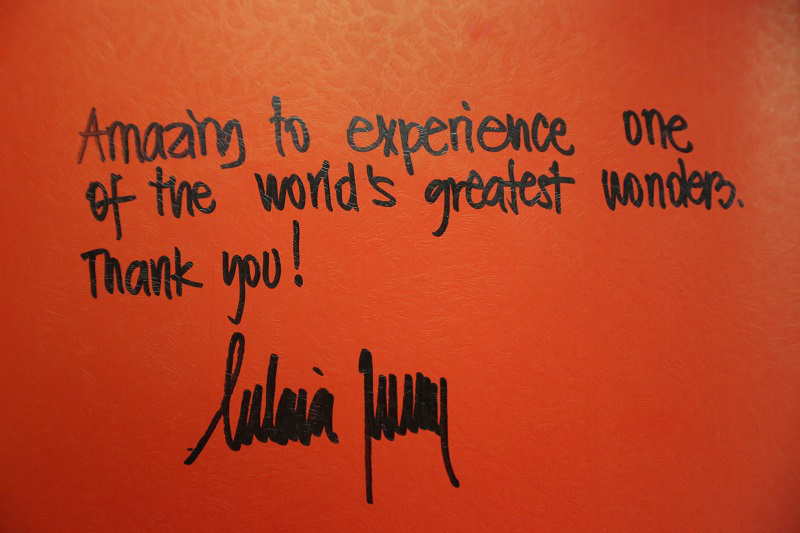 Amazing to experience one
of the world's greatest wonders.
Thank you!